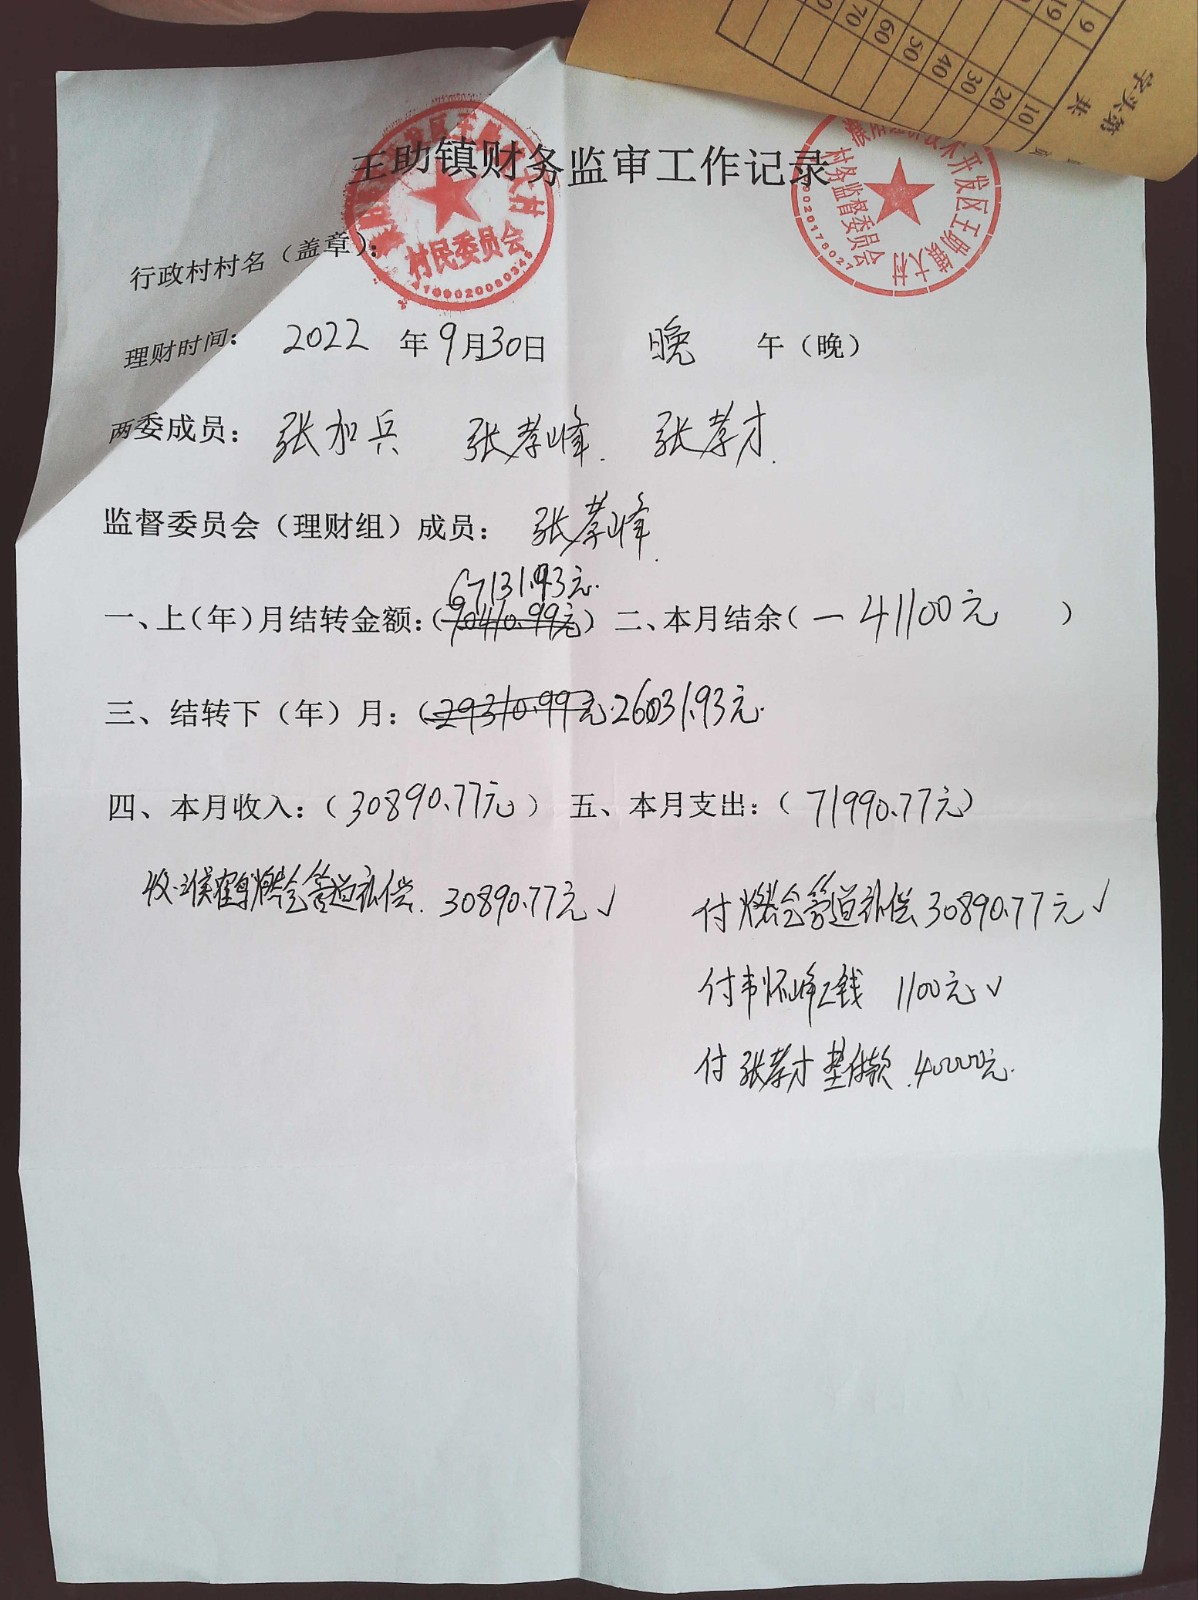 9
10
19
20
30
40
50
60
70
字头第
共
王助镇财务监审工作记录
村民委员会
技术开发区王助镇
大村
村务监督委员会
行政村村名（盖章）：
理财时间： 2022 年 9月30日 晚 午（晚）
两委成员： 张加兵 张孝峰. 张孝才.
监督委员会（理财组）成员： 张孝峰.
67131.93元.
一、上（年）月结转金额：（70410.99元） 二、本月结余（－41100元 ）
三、结转下（年）月：（29310.99元.26031.93元.
四、本月收入：（30890.77元） 五、本月支出：（71990.77元）
收:濮鹤燃气管道补偿. 30890.77元√
付燃气管道补偿30890.77元√
付韦怀峰工钱 1100元√
付张孝才垫付款.40000元.